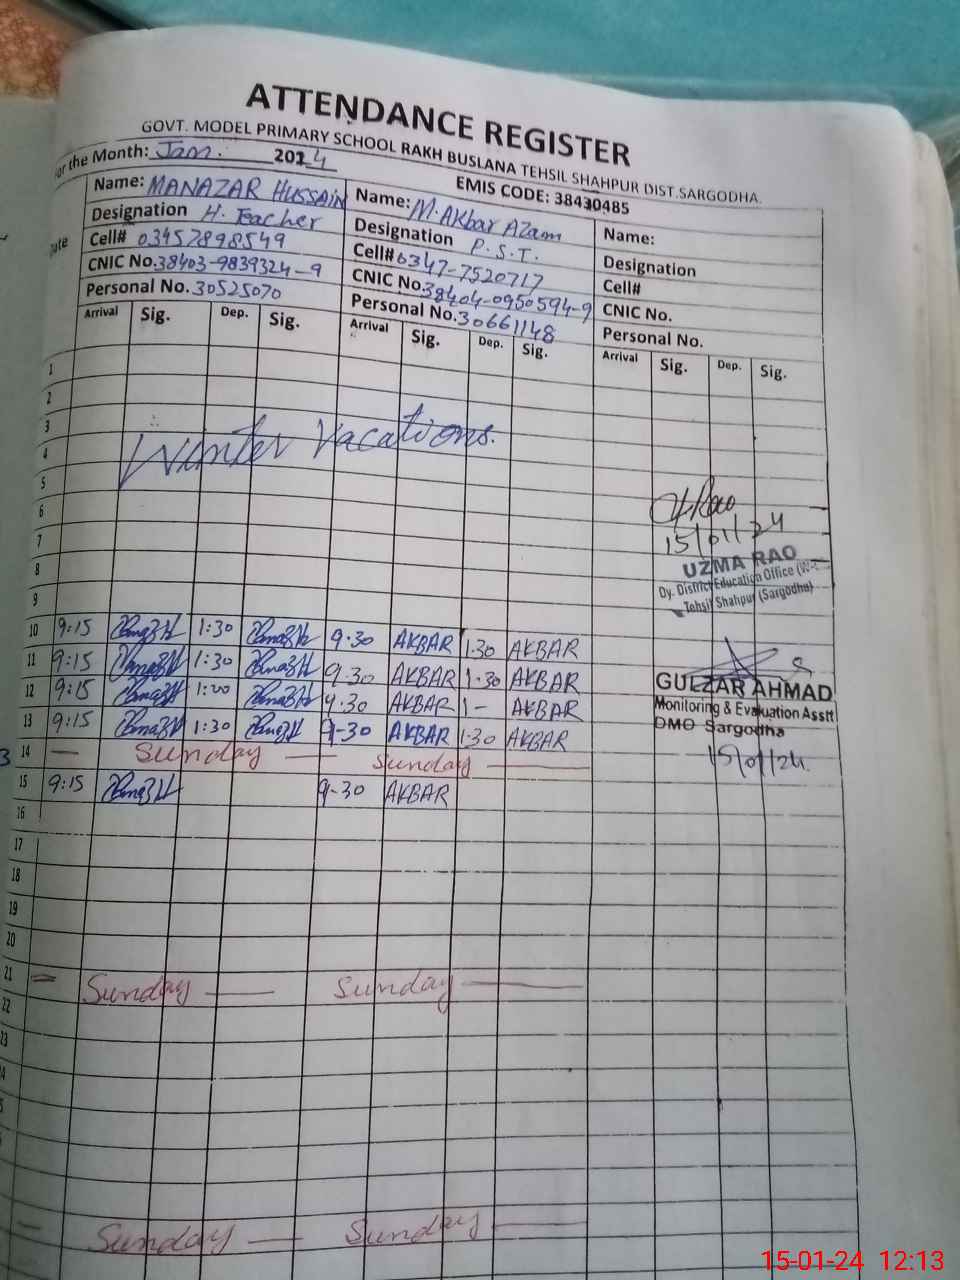 ATTENDANCE REGISTER
GOVT. MODEL PRIMARY SCHOOL RAKH BUSLANA TEHSIL SHAHPUR DIST.SARGODHA.
For the Month: Jan. 2024
EMIS CODE: 38430485
Name: MANAZAR HUSSAIN Name: M. AKbar AZam Name:
Designation H. Teacher Designation P.S.T. Designation
Cell# 03457898549 Cell# 0347-7520717 Cell#
CNIC No. 38403-9839324-9 CNIC No. 38404-0950594-9 CNIC No.
Personal No. 30525070 Personal No. 30661148 Personal No.
Date Arrival Sig. Dep. Sig. Arrival Sig. Dep. Sig. Arrival Sig. Dep. Sig.
1
2
3
Winter Vacations.
4
5
6
7
15/01/24
8
UZMA RAO
Dy. District Education Office
9
Tehsil Shahpur (Sargodha)
10 9:15 1:30 9.30 AKBAR 1.30 AKBAR
11 9:15 1:30 9.30 AKBAR 1.30 AKBAR
12 9:15 1:00 9.30 AKBAR 1- AKBAR
GULZAR AHMAD
Monitoring & Evaluation Asstt
13 9:15 1:30 9-30 AKBAR 1:30 AKBAR
DMO Sargodha
14 — Sunday — Sunday —
15/01/24.
15 9:15 9-30 AKBAR
16
17
18
19
20
21 — Sunday — Sunday —
22
23
— Sunday — Sunday —
15-01-24 12:13